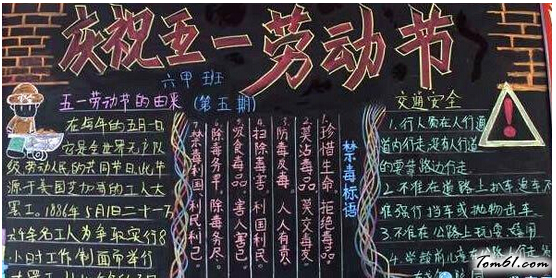 庆祝五一劳动节
六甲班
五一劳动节的由来 (第五期)
在每年的五月一日
它是全世界无产
级劳动人民的共同节日,此节
源于美国芝加哥的工人大
罢工。1886年5月1日二十一万
千名工人为争取实行8
小时工作制而举行
禁毒标语
1.珍惜生命 拒绝毒品。
2.莫沾毒品 莫交毒友。
3.防毒反毒 人人有责
4.扫除毒害。利国利民
5.吸食毒品。害人害己
6.除毒务早。除毒务尽。
禁毒利国 利民利己
交通安全
1.行人需在人行道
道内行走,没有人行道
的要靠路边行走。
2.不准在道路上扒车追车,不
准强行拦车或抛物击车
3.不准在公路上玩耍嬉闹
4.学龄前儿童
Tom61.com